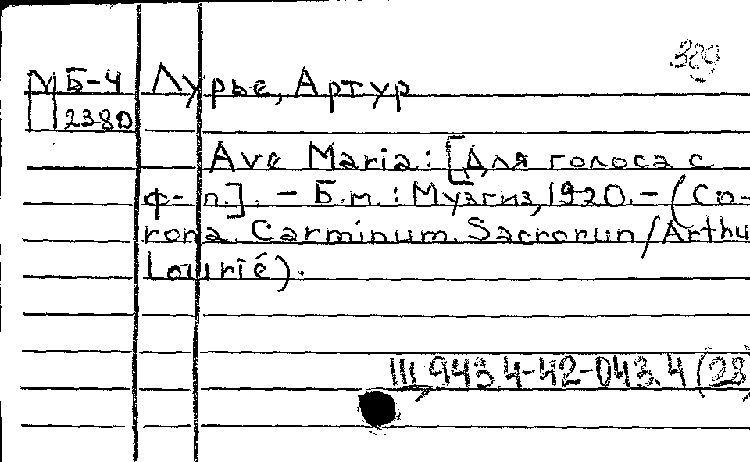 389
М Б-4 Лурье, Артур
2380
Ave Maria: [Для голоса с
ф-п.]. – Б.м.: Музгиз, 1920. – (Co-
rona Carminum Sacrorun/Arthu
Lourié).
III, 943.4-42-043.4 (28)